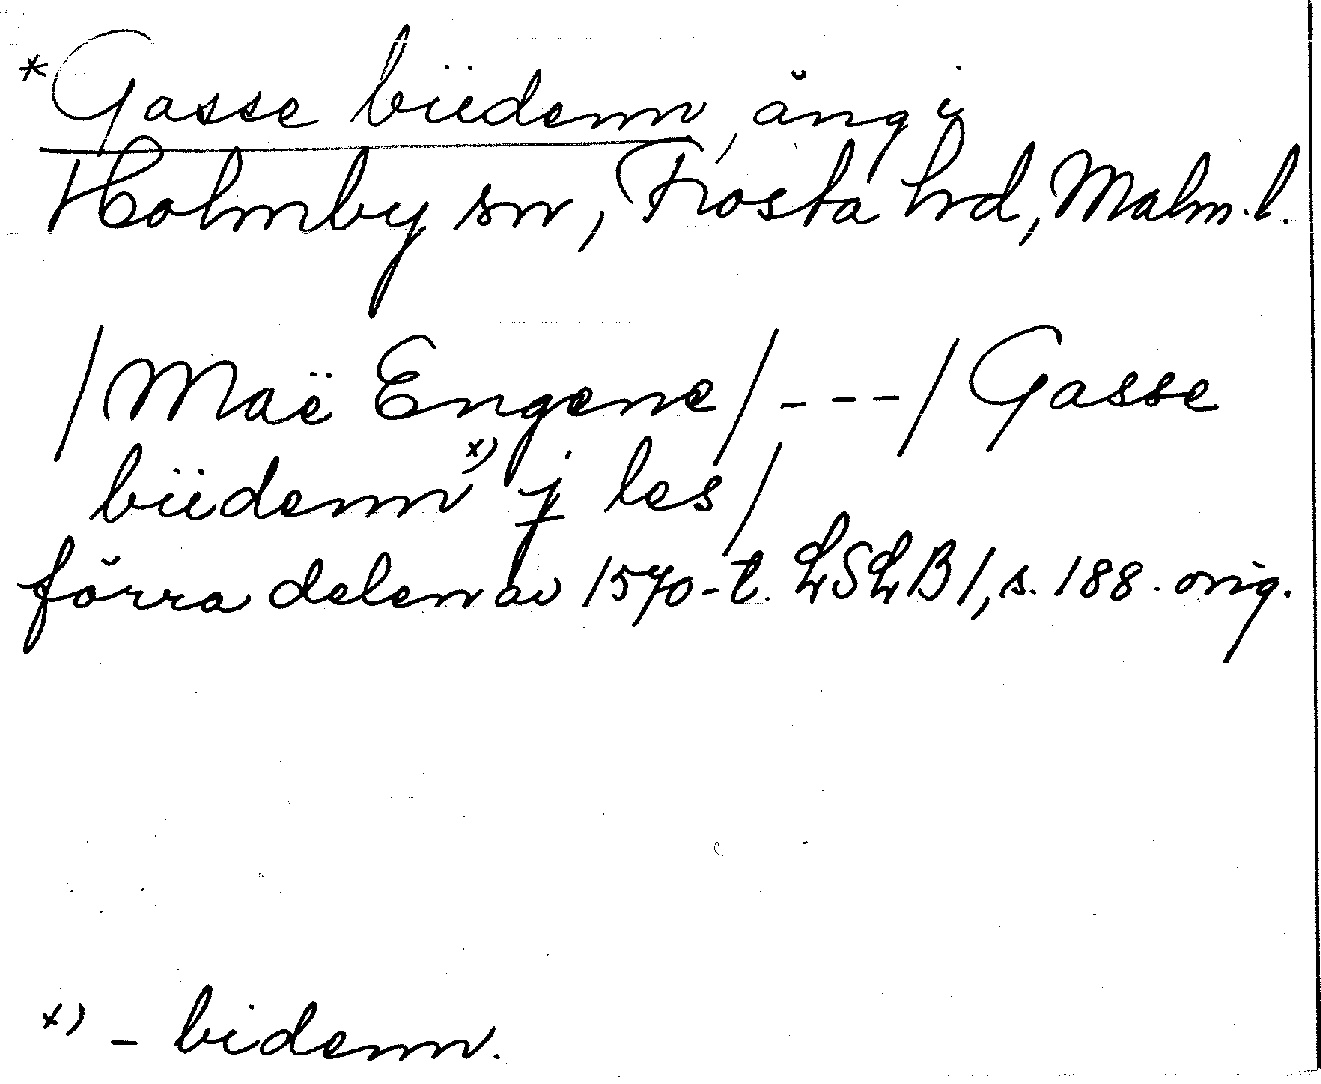 * Gasse biidenn, äng i
Holmby sn, Frosta hrd, Malm. l.
/Maë Engene/---/Gasse
biidenn x) j les/
förra delen av 1570-t. LSLB 1, s. 188. orig.
x) - bidenn.